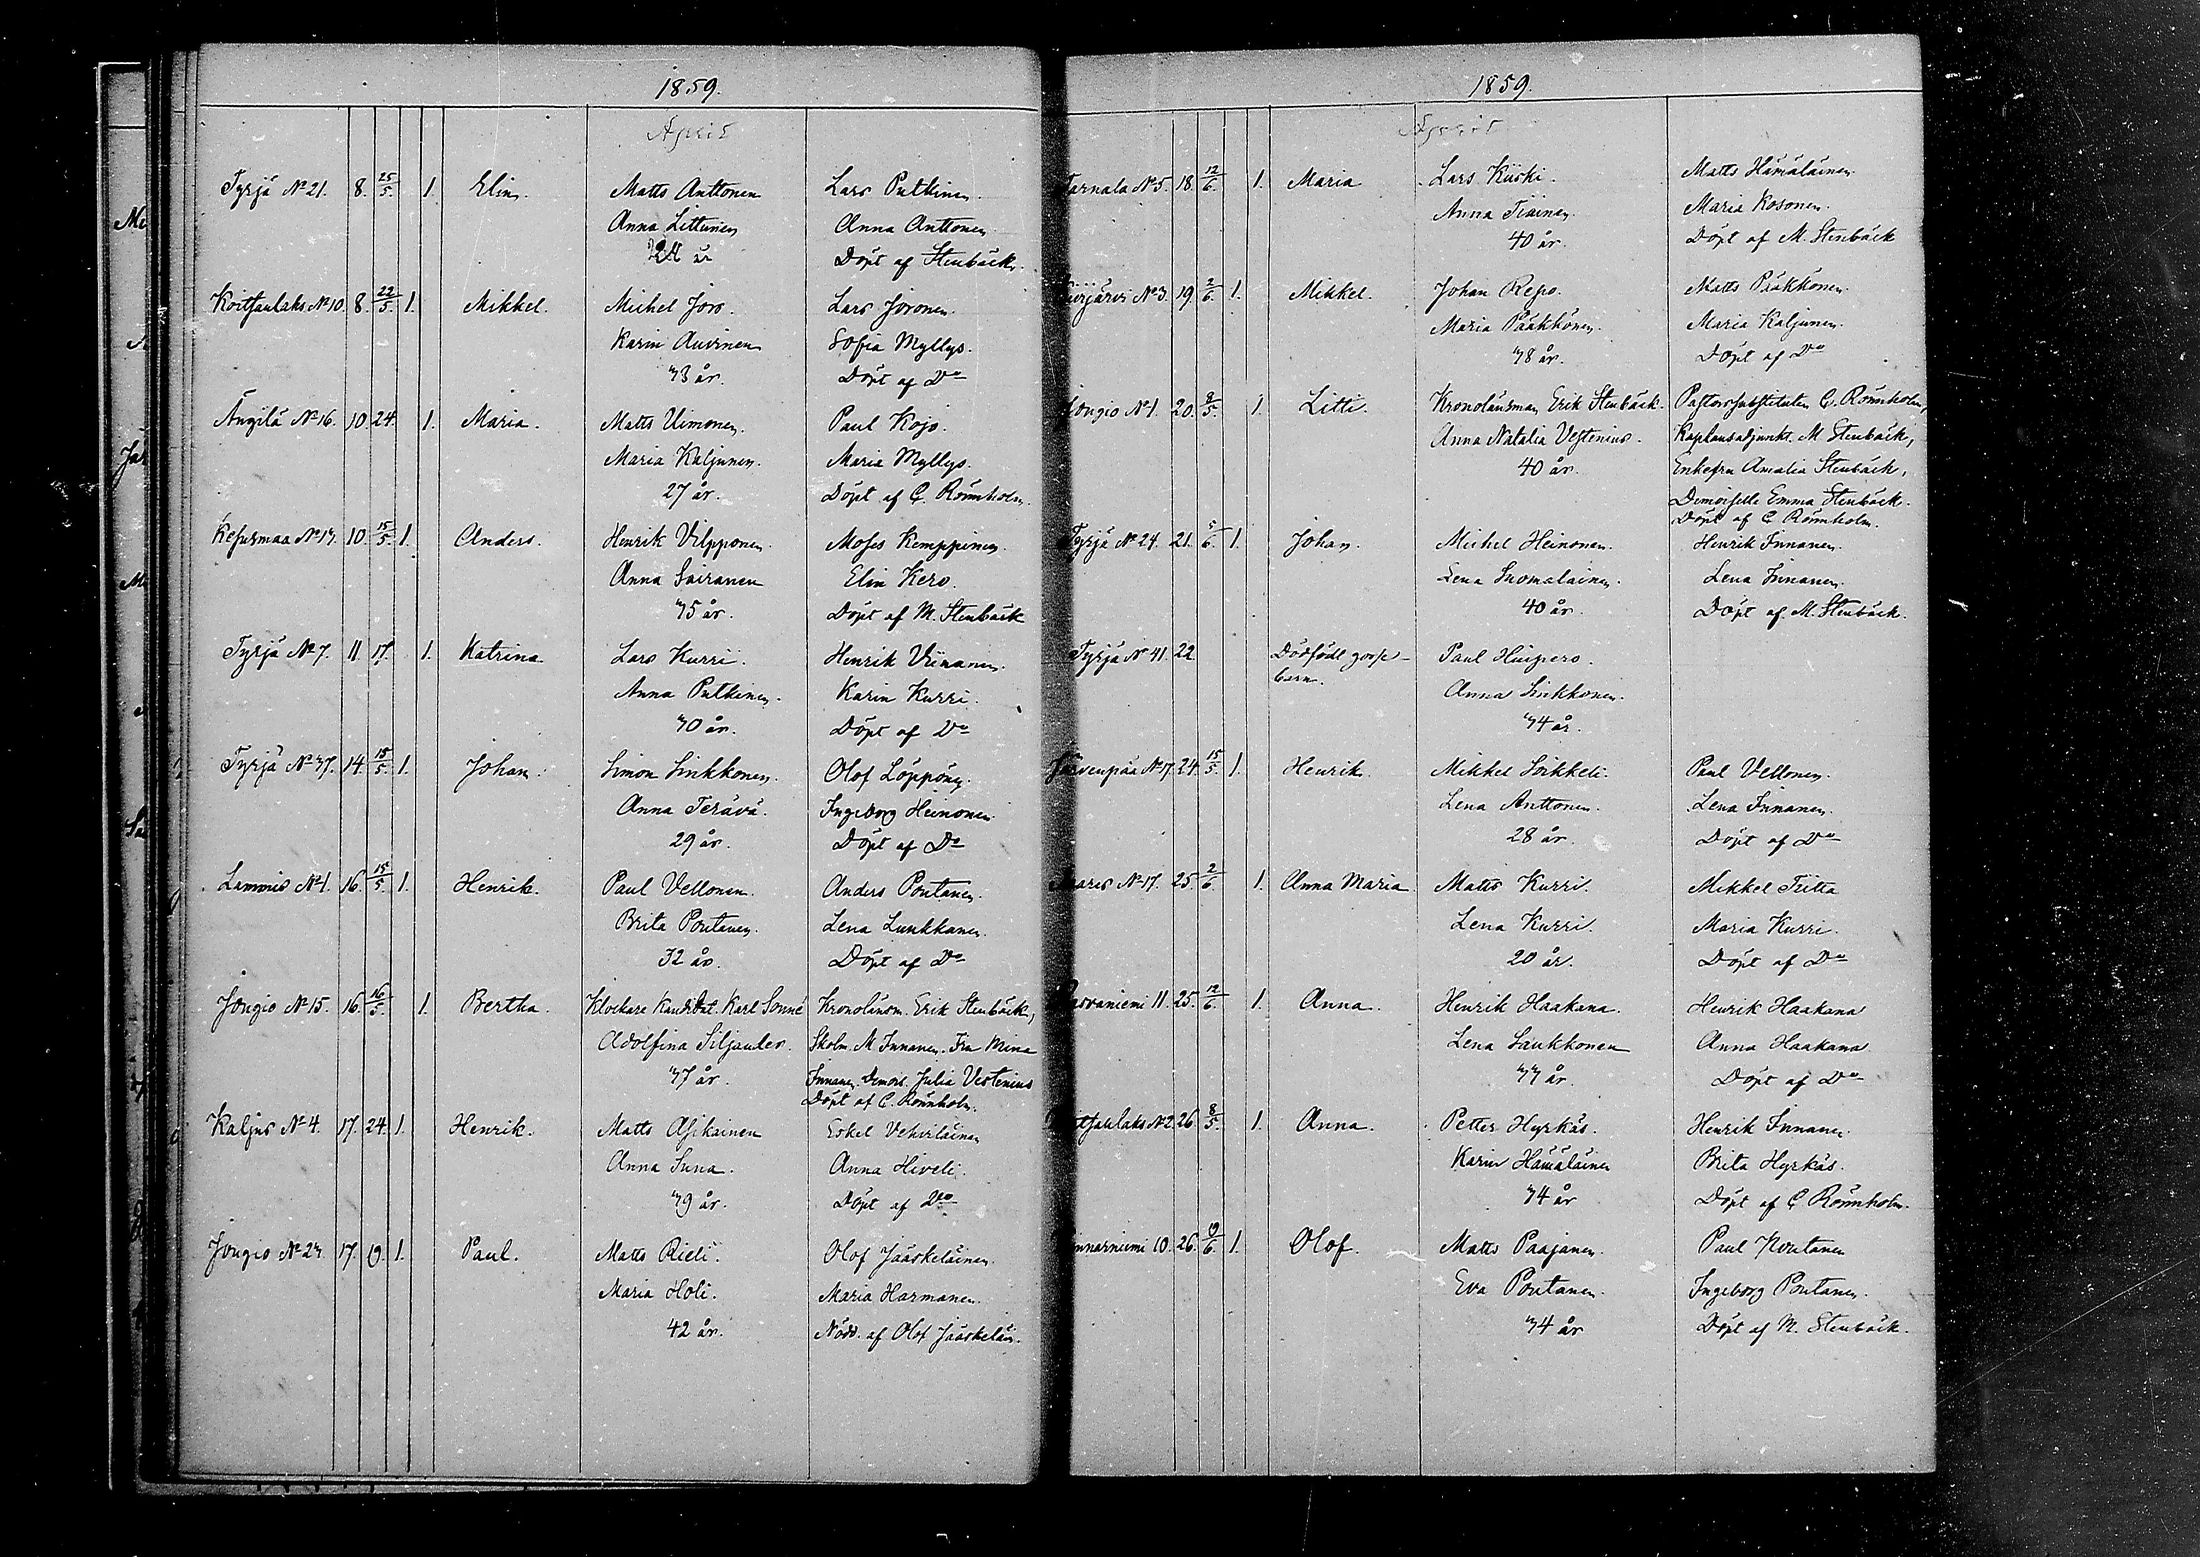 1859.
April
Tyrjä No 21. 8. 25/5. 1. Elin. Matts Anttonen Lars Putkinen.
Anna Littunen Anna Anttonen.
år Döpt af Stenbäck.
Koitsanlaks No 10 8. 22/5. 1. Mikkel. Michel Joro. Lars Joronen.
Karin Auvinen Sofia Myllys.
33 år. Döpt af Do
Ängilä No 16. 10. 24. 1. Maria. Matts Uimonen. Paul Kojo.
Maria Kaljunen. Maria Myllys.
27 år. Döpt af C. Rönnholm.
Kesusmaa No 13. 10. 15/5. 1. Anders. Henrik Vilpponen. Moses Kemppinen.
Anna Sairanen Elin Kero.
35 år. Döpt af M. Stenbäck
Tyrjä No 7. 11. 17. 1. Katrina. Lars Kurri. Henrik Viinanen.
Anna Putkinen. Karin Kurri.
30 år. Döpt af Do
Tyrjä No 37. 14. 15/5. 1. Johan. Simon Sinkkonen. Olof Löppönen.
Anna Terävä. Ingeborg Heinonen.
29 år. Döpt af Do
Lammis No 1. 16. 15/5. 1. Henrik. Paul Vellonen. Anders Pontanen.
Brita Pontanen. Lena Lunkkanen.
32 år. Döpt af Do
Jougio No 15. 16. 16/5. 1. Bertha. Klockare Kandidat. Karl Sonné Kronolänsm. Erik Stenbäck,
Adolfina Siljander. Skolm. M Innanen. Fru Mina
37 år. Innanen. Demois. Julia Vestenius
Döpt af C. Rönnholm.
Kaljus No 4. 17. 24. 1. Henrik. Matts Asikainen Eskel Vehviläinen
Anna Suna. Anna Hiveli.
39 år. Döpt af Do
Jougio No 23. 17. 19. 1. Paul. Matts Rieli. Olof Jääskeläinen.
Maria Holi. Maria Harmanen.
42 år. Nödd. af Olof Jääskeläin.
1859.
April
Tarnala No 5. 18. 12/6. 1. Maria Lars Kiiski. Matts Hämäläinen.
Anna Tiainen. Maria Kosonen.
40 år. Döpt af M. Stenbäck
No 3. 19 2/6. 1. Mikkel. Johan Repo. Matts Pääkkönen.
Maria Pääkkönen. Maria Kaljunen.
38 år. Döpt af Do
Jougio No 1. 20. 8/5. 1. Litti. Kronolänsman Erik Stenbäck. Pastorssubstituten C. Rönnholm,
Anna Natalia Vestenius. Kaplansadjunkt. M Stenbäck,
40 år. Enkefru Amalia Stenbäck,
Demoiselle Emma Stenbäck.
Döpt af C Rönnholm.
Tyrjä No 24. 21. 5/6. 1. Johan. Michel Heinonen. Henrik Innanen.
Lena Suomalainen. Lena Innanen.
40 år. Döpt af M. Stenbäck.
Tyrjä No 41. 22 Dödfödt gosse- Paul Huipero.
barn. Anna Sinkkonen.
34 år.
Järvenpää No 17. 24. 15/5. 1. Henrik. Mikkel Soikkeli. Paul Vellonen.
Lena Anttonen. Lena Innanen.
28 år. Döpt af Do
No 17. 25. 2/6. 1. Anna Maria Matts Kurri. Mikkel Tiitta
Lena Kurri. Maria Kurri.
20 år. Döpt af Do
11. 25. 12/6. 1. Anna. Henrik Haakana. Henrik Haakana
Lena Laukkonen Anna Haakana.
33 år. Döpt af Do
No 2. 26. 8/5. 1. Anna. Petter Hyrkäs. Henrik Innanen.
Karin Hämäläinen Brita Hyrkäs.
34 år Döpt af C Rönnholm.
10. 26. 19/6. 1. Olof. Matts Paajanen. Paul Pontanen
Eva Pontanen. Ingeborg Pontanen.
34 år Döpt af M. Stenbäck.